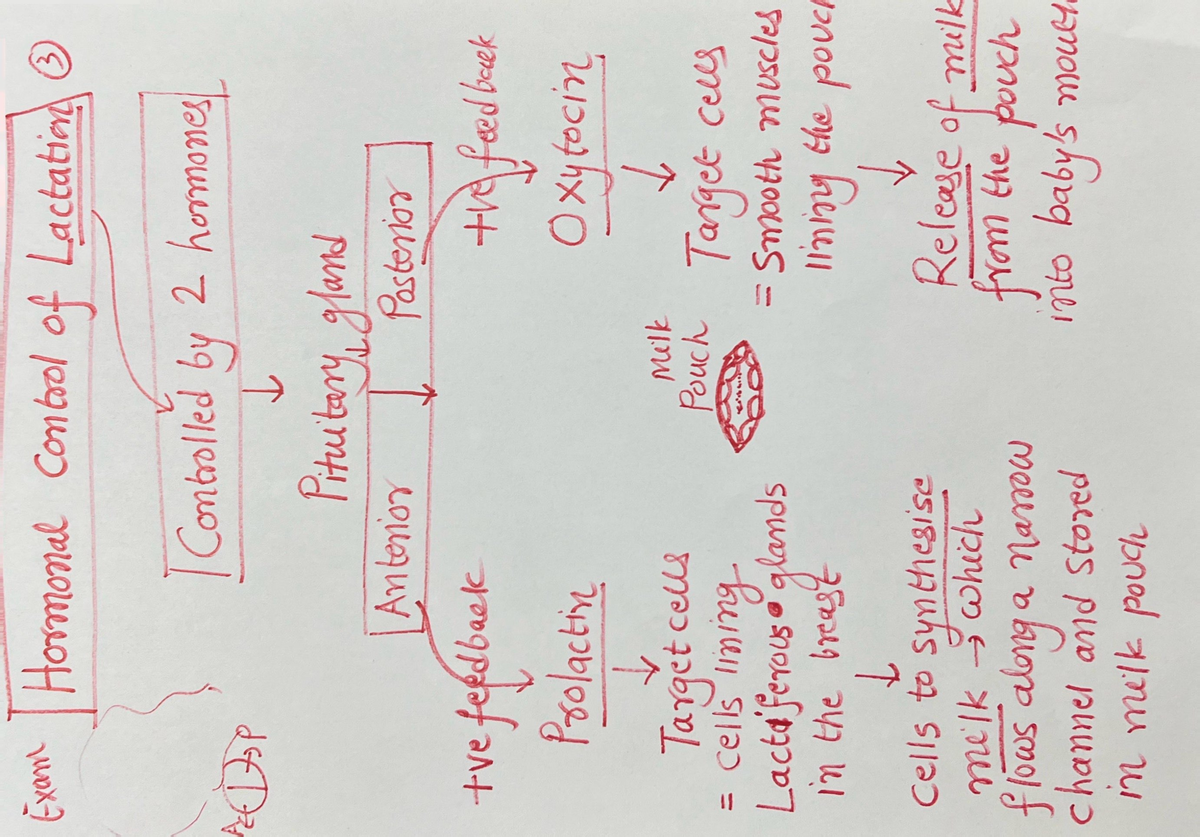 Exam
Hormonal Control of Lactation ③
Controlled by 2 hormones
Pituitary gland
Anterior
Posterior
+ve feedback
+ve feedback
Prolactin
Oxytocin
Target cells
= cells lining
Lactiferous glands
in the breast
Milk
Pouch
Target cells
= Smooth muscles
lining the pouch
cells to synthesise
milk → which
flows along a narrow
channel and stored
in milk pouch
Release of milk
from the pouch
into baby's mouth